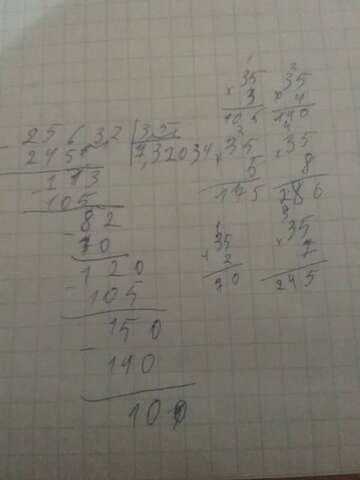 25632 | 3,5
245 7,32034
113
105
82
70
120
105
150
140
100
1
35
× 3
105
2
35
× 4
140
2
35
× 5
175
4
35
× 8
286
1
35
× 2
70
3
35
× 7
245